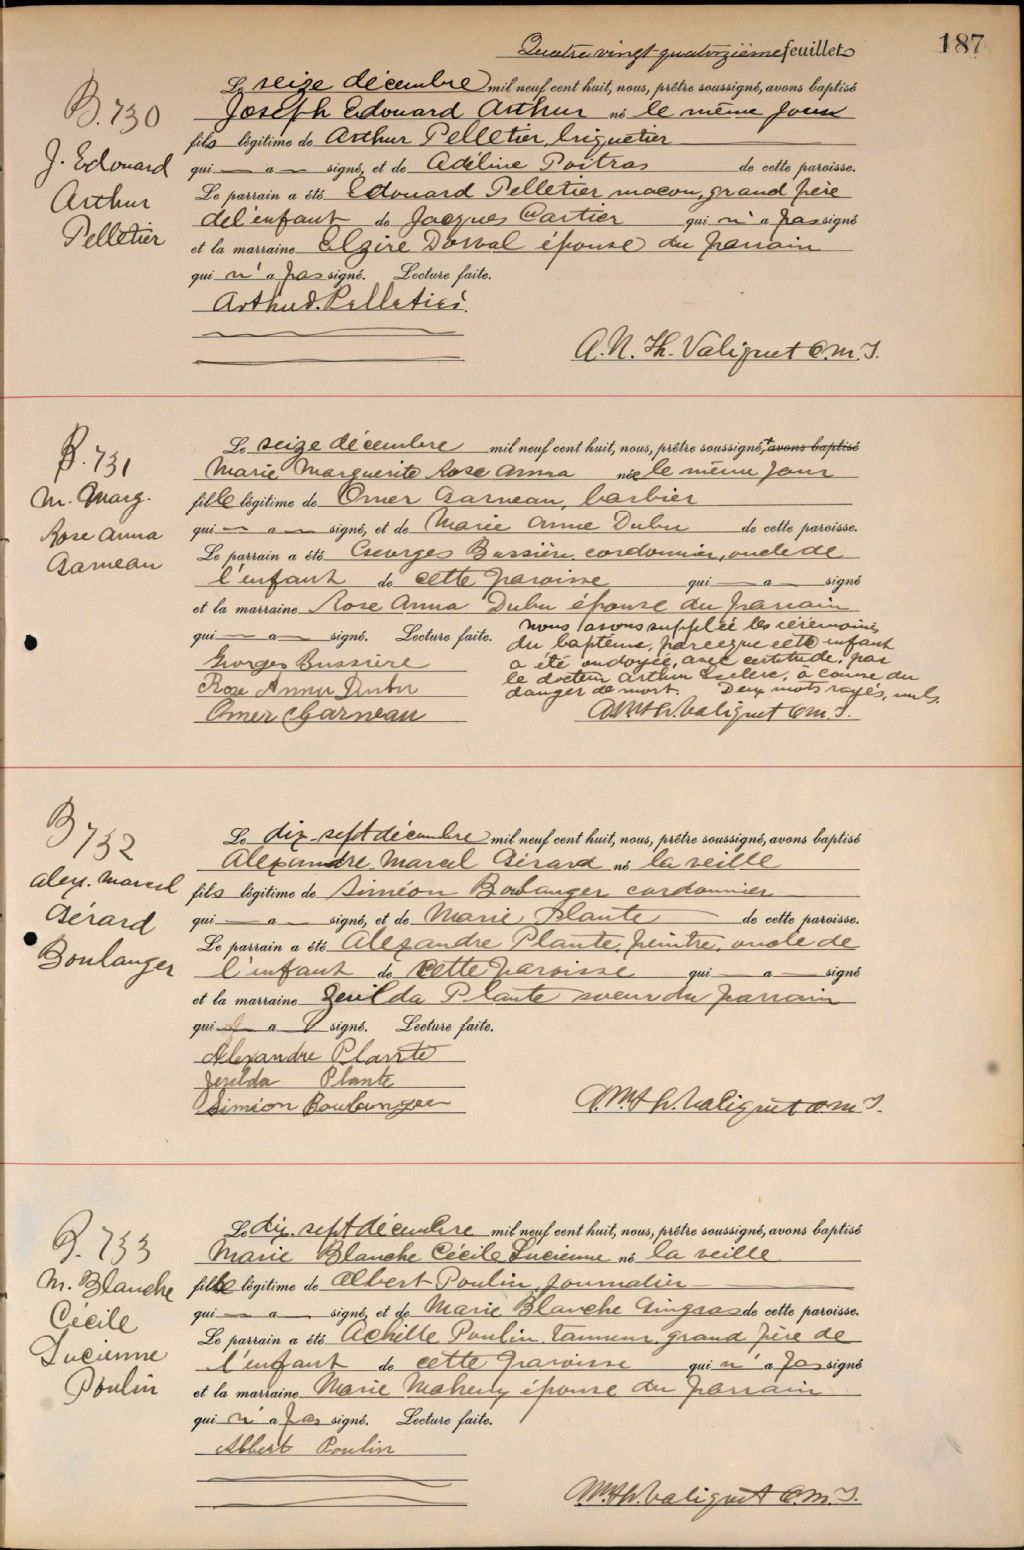 Quatre vingt-quatorzième feuillet
187
B. 730
J. Edouard
Arthur
Pelletier
Le seize décembre mil neuf cent huit, nous, prêtre soussigné, avons baptisé
Joseph Edouard Arthur né le même jour
fils légitime de Arthur Pelletier, briquetier
qui — a — signé, et de Adéline Poitras de cette paroisse.
Le parrain a été Edouard Pelletier maçon, grand père
de l'enfant de Jacques Cartier qui n'a pas signé
et la marraine Elzire Dorval épouse du parrain
qui n'a pas signé. Lecture faite.
Arthur J. Pelletier
A. N. Th. Valiquet O.M.I.
B. 731
M. Marg.
Rose Anna
Garneau
Le seize décembre mil neuf cent huit, nous, prêtre soussigné, avons baptisé
Marie Marguerite Rose Anna née le même jour
fille légitime de Omer Garneau, barbier
qui — a — signé, et de Marie Anne Dubu de cette paroisse.
Le parrain a été Georges Bussière cordonnier, oncle de
l'enfant de cette paroisse qui — a — signé
et la marraine Rose Anna Dubu épouse du parrain
qui — a — signé. Lecture faite.
nous avons supplée les cérémonies
du baptême, parceque cette enfant
a été ondoyée, avec certitude, par
le docteur Arthur Leclerc, à cause du
danger de mort. Deux mots rayés, nuls.
Georges Bussière
Rose Anna Dubu
Omer Garneau
A. N. Th. Valiquet O.M.I.
B 732
Alex. Marcel
Gérard
Boulanger
Le dix-sept décembre mil neuf cent huit, nous, prêtre soussigné, avons baptisé
Alexandre Marcel Gérard né la veille
fils légitime de Siméon Boulanger cordonnier
qui — a — signé, et de Marie Plante de cette paroisse.
Le parrain a été Alexandre Plante, peintre, oncle de
l'enfant de cette paroisse qui — a — signé
et la marraine Zerilda Plante soeur du parrain
qui — a — signé. Lecture faite.
Alexandre Plante
Zerilda Plante
Siméon Boulanger
A. N. Th. Valiquet O.M.I.
B. 733
M. Blanche
Cécile
Lucienne
Poulin
Le dix-sept décembre mil neuf cent huit, nous, prêtre soussigné, avons baptisé
Marie Blanche Cécile Lucienne né la veille
fille légitime de Albert Poulin, journalier
qui — a — signé, et de Marie Blanche Gingras de cette paroisse.
Le parrain a été Achille Poulin, tanneur, grand père de
l'enfant de cette paroisse qui n'a pas signé
et la marraine Marie Maheuy épouse du parrain
qui n'a pas signé. Lecture faite.
Albert Poulin
A. N. Th. Valiquet O.M.I.